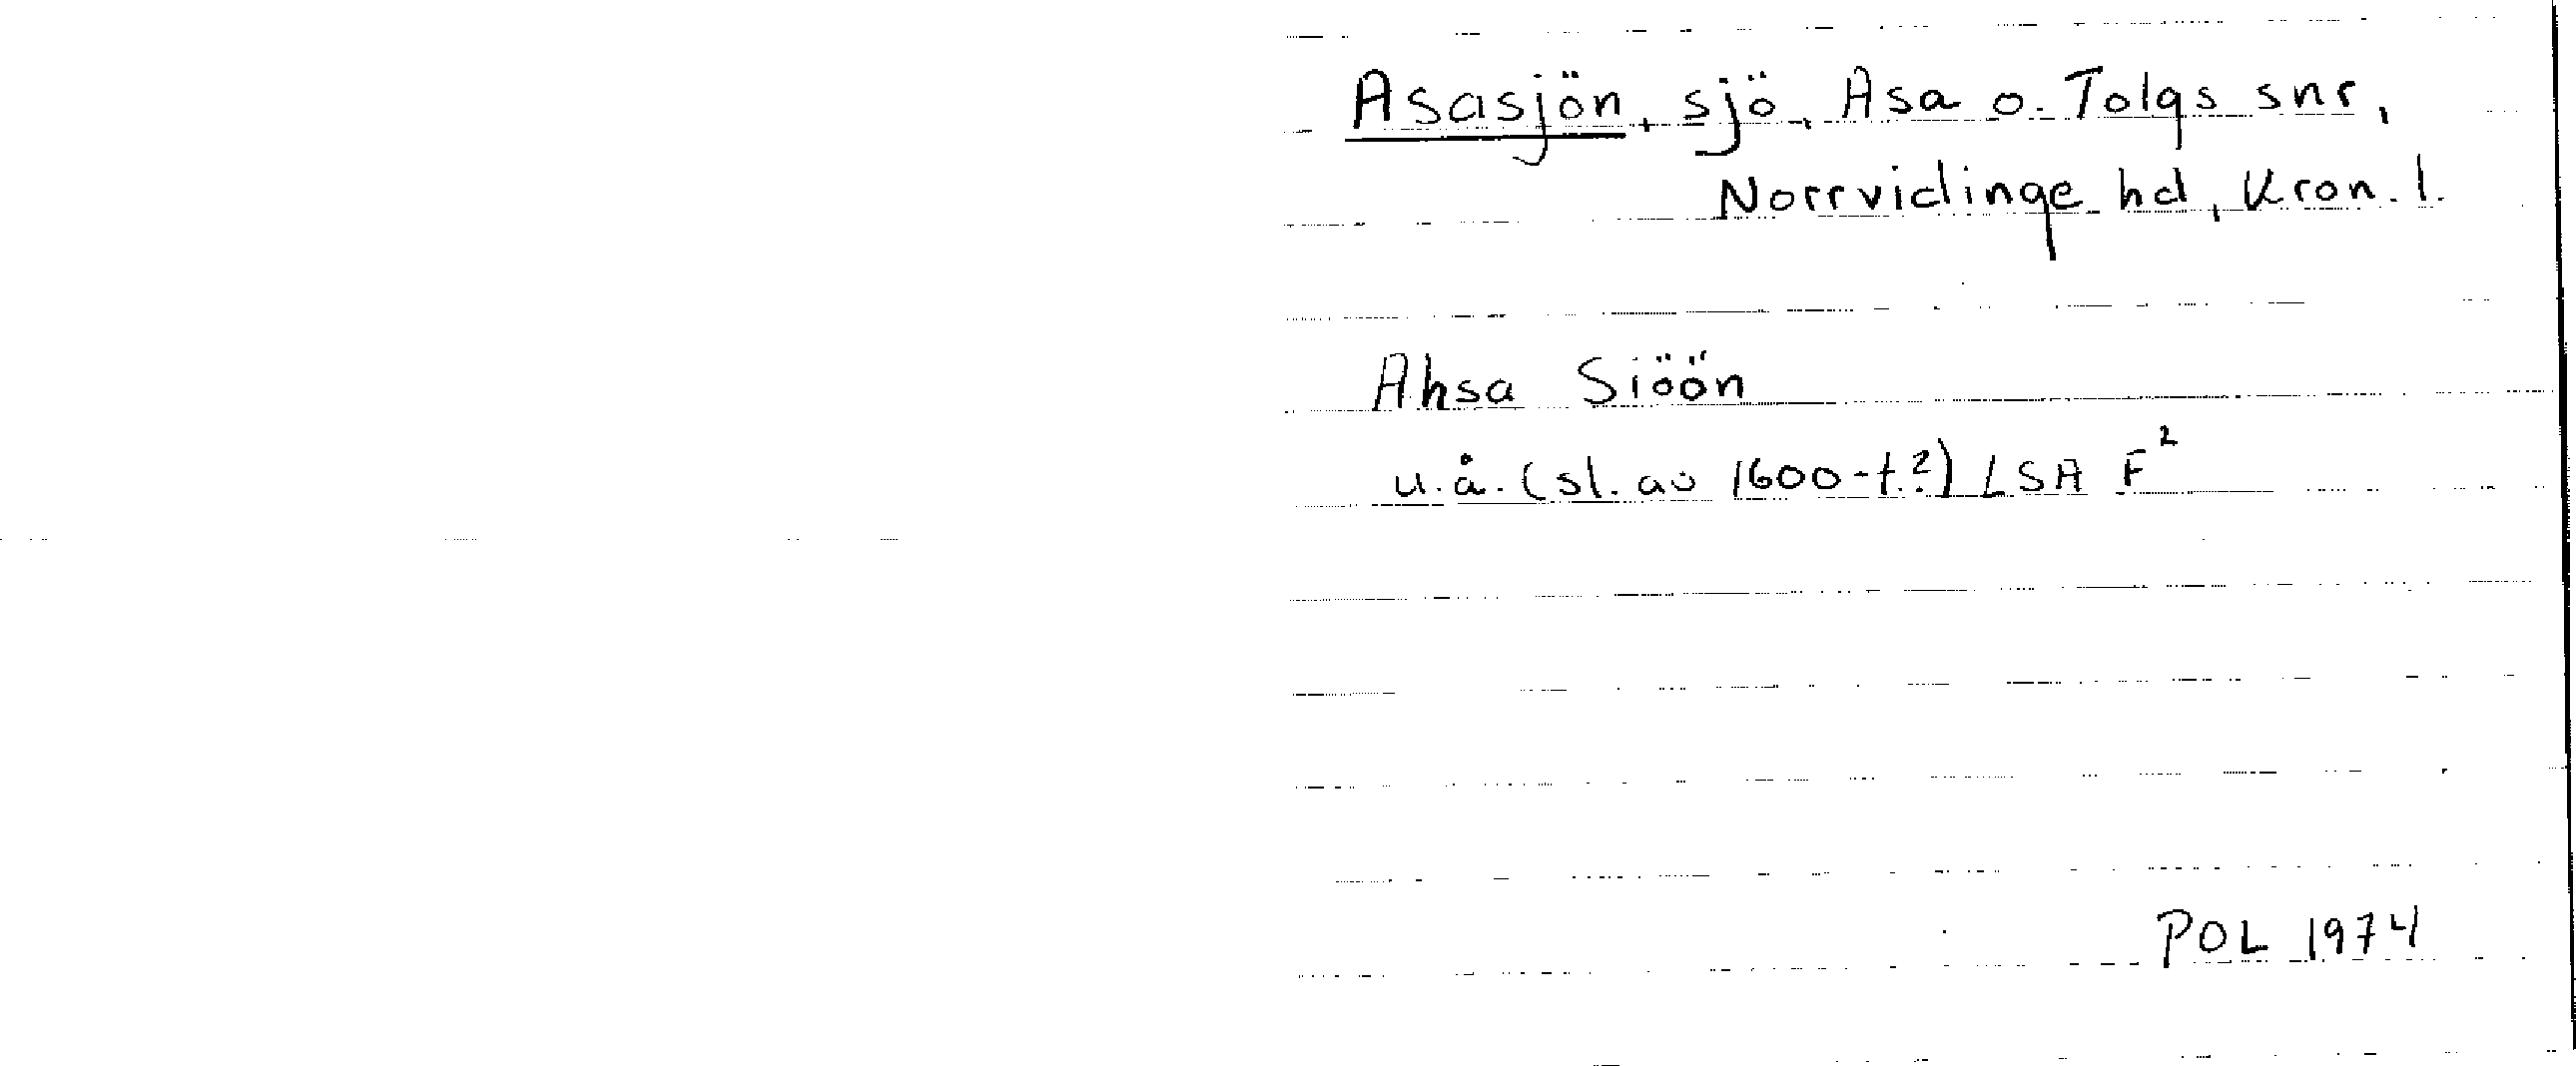 Asasjön, sjö, Asa o. Tolgs snr,
Norrvidinge hd, Kron. l.
Ahsa Siöön
u.å. (sl. av 1600-t.?) LSA F²
POL 1974